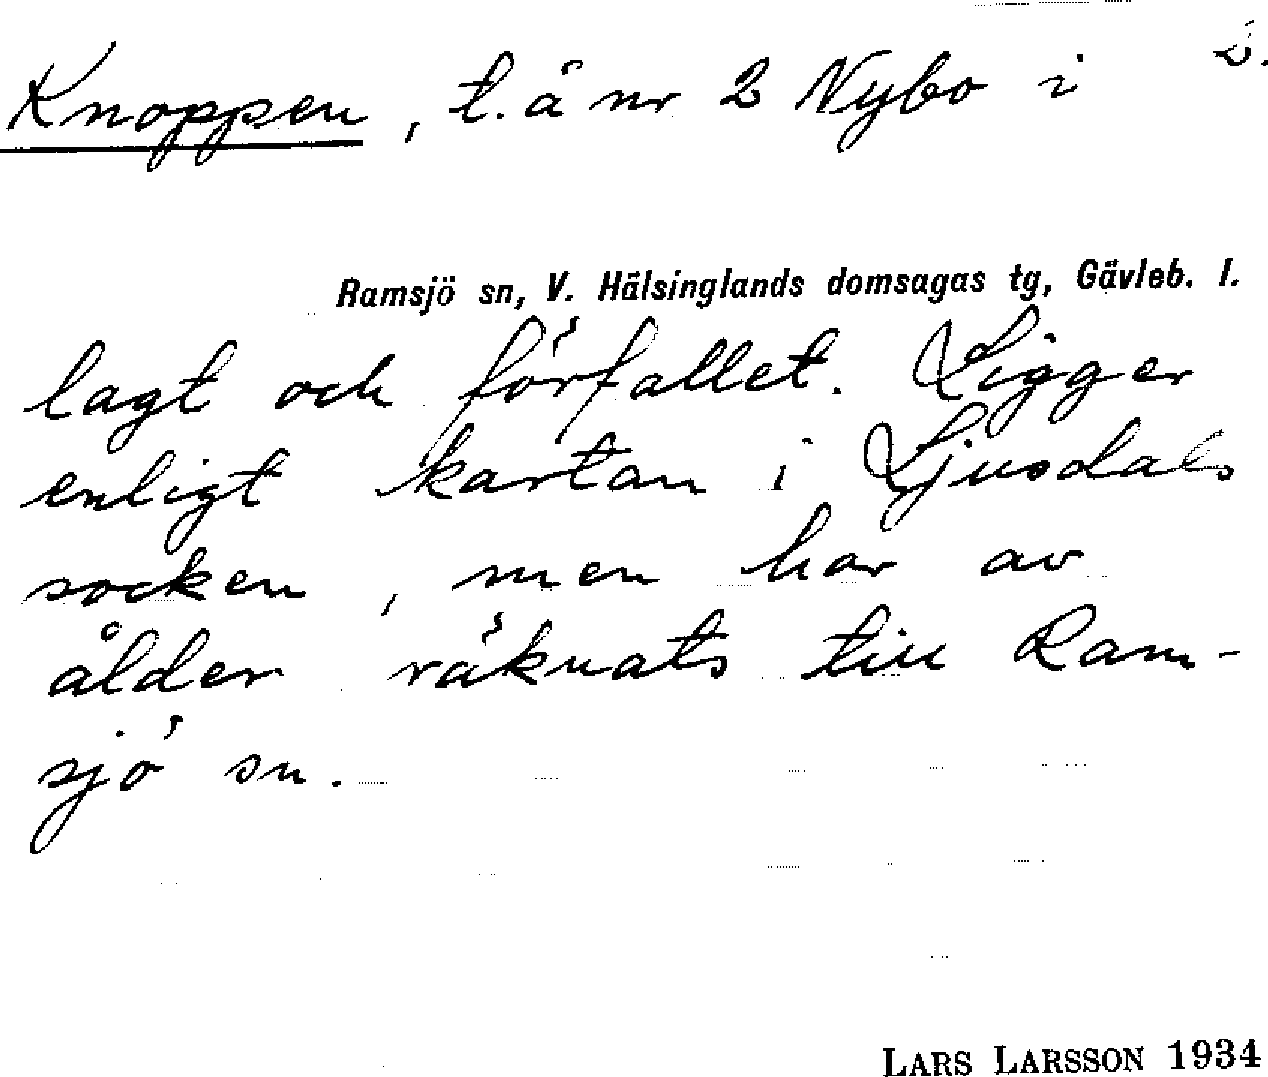 2.
Knoppen, t. å nr 2 Nybo i
Ramsjö sn, V. Hälsinglands domsagas tg, Gävleb. l.
lagt och förfallet. Ligger
enligt kartan i Ljusdals
socken, men har av
ålder räknats till Ram-
sjö sn.
LARS LARSSON 1934